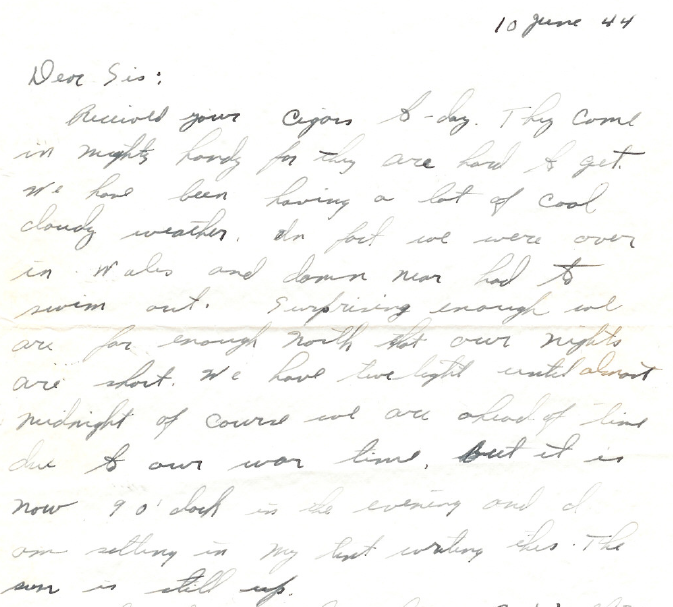 10 June 44
Dear Sis:
Received your cigars to-day. They come
in mighty handy for they are hard to get.
We have been having a lot of cool
cloudy weather. In fact we were over
in Wales and damn near had to
swim out. Surprising enough we
are far enough North that our nights
are short. We have twe light until almost
midnight of course we are ahead of time
due to our war time, but it is
now 9 o'clock in the evening and I
am setting in my tent writing this. The
sun is still up.